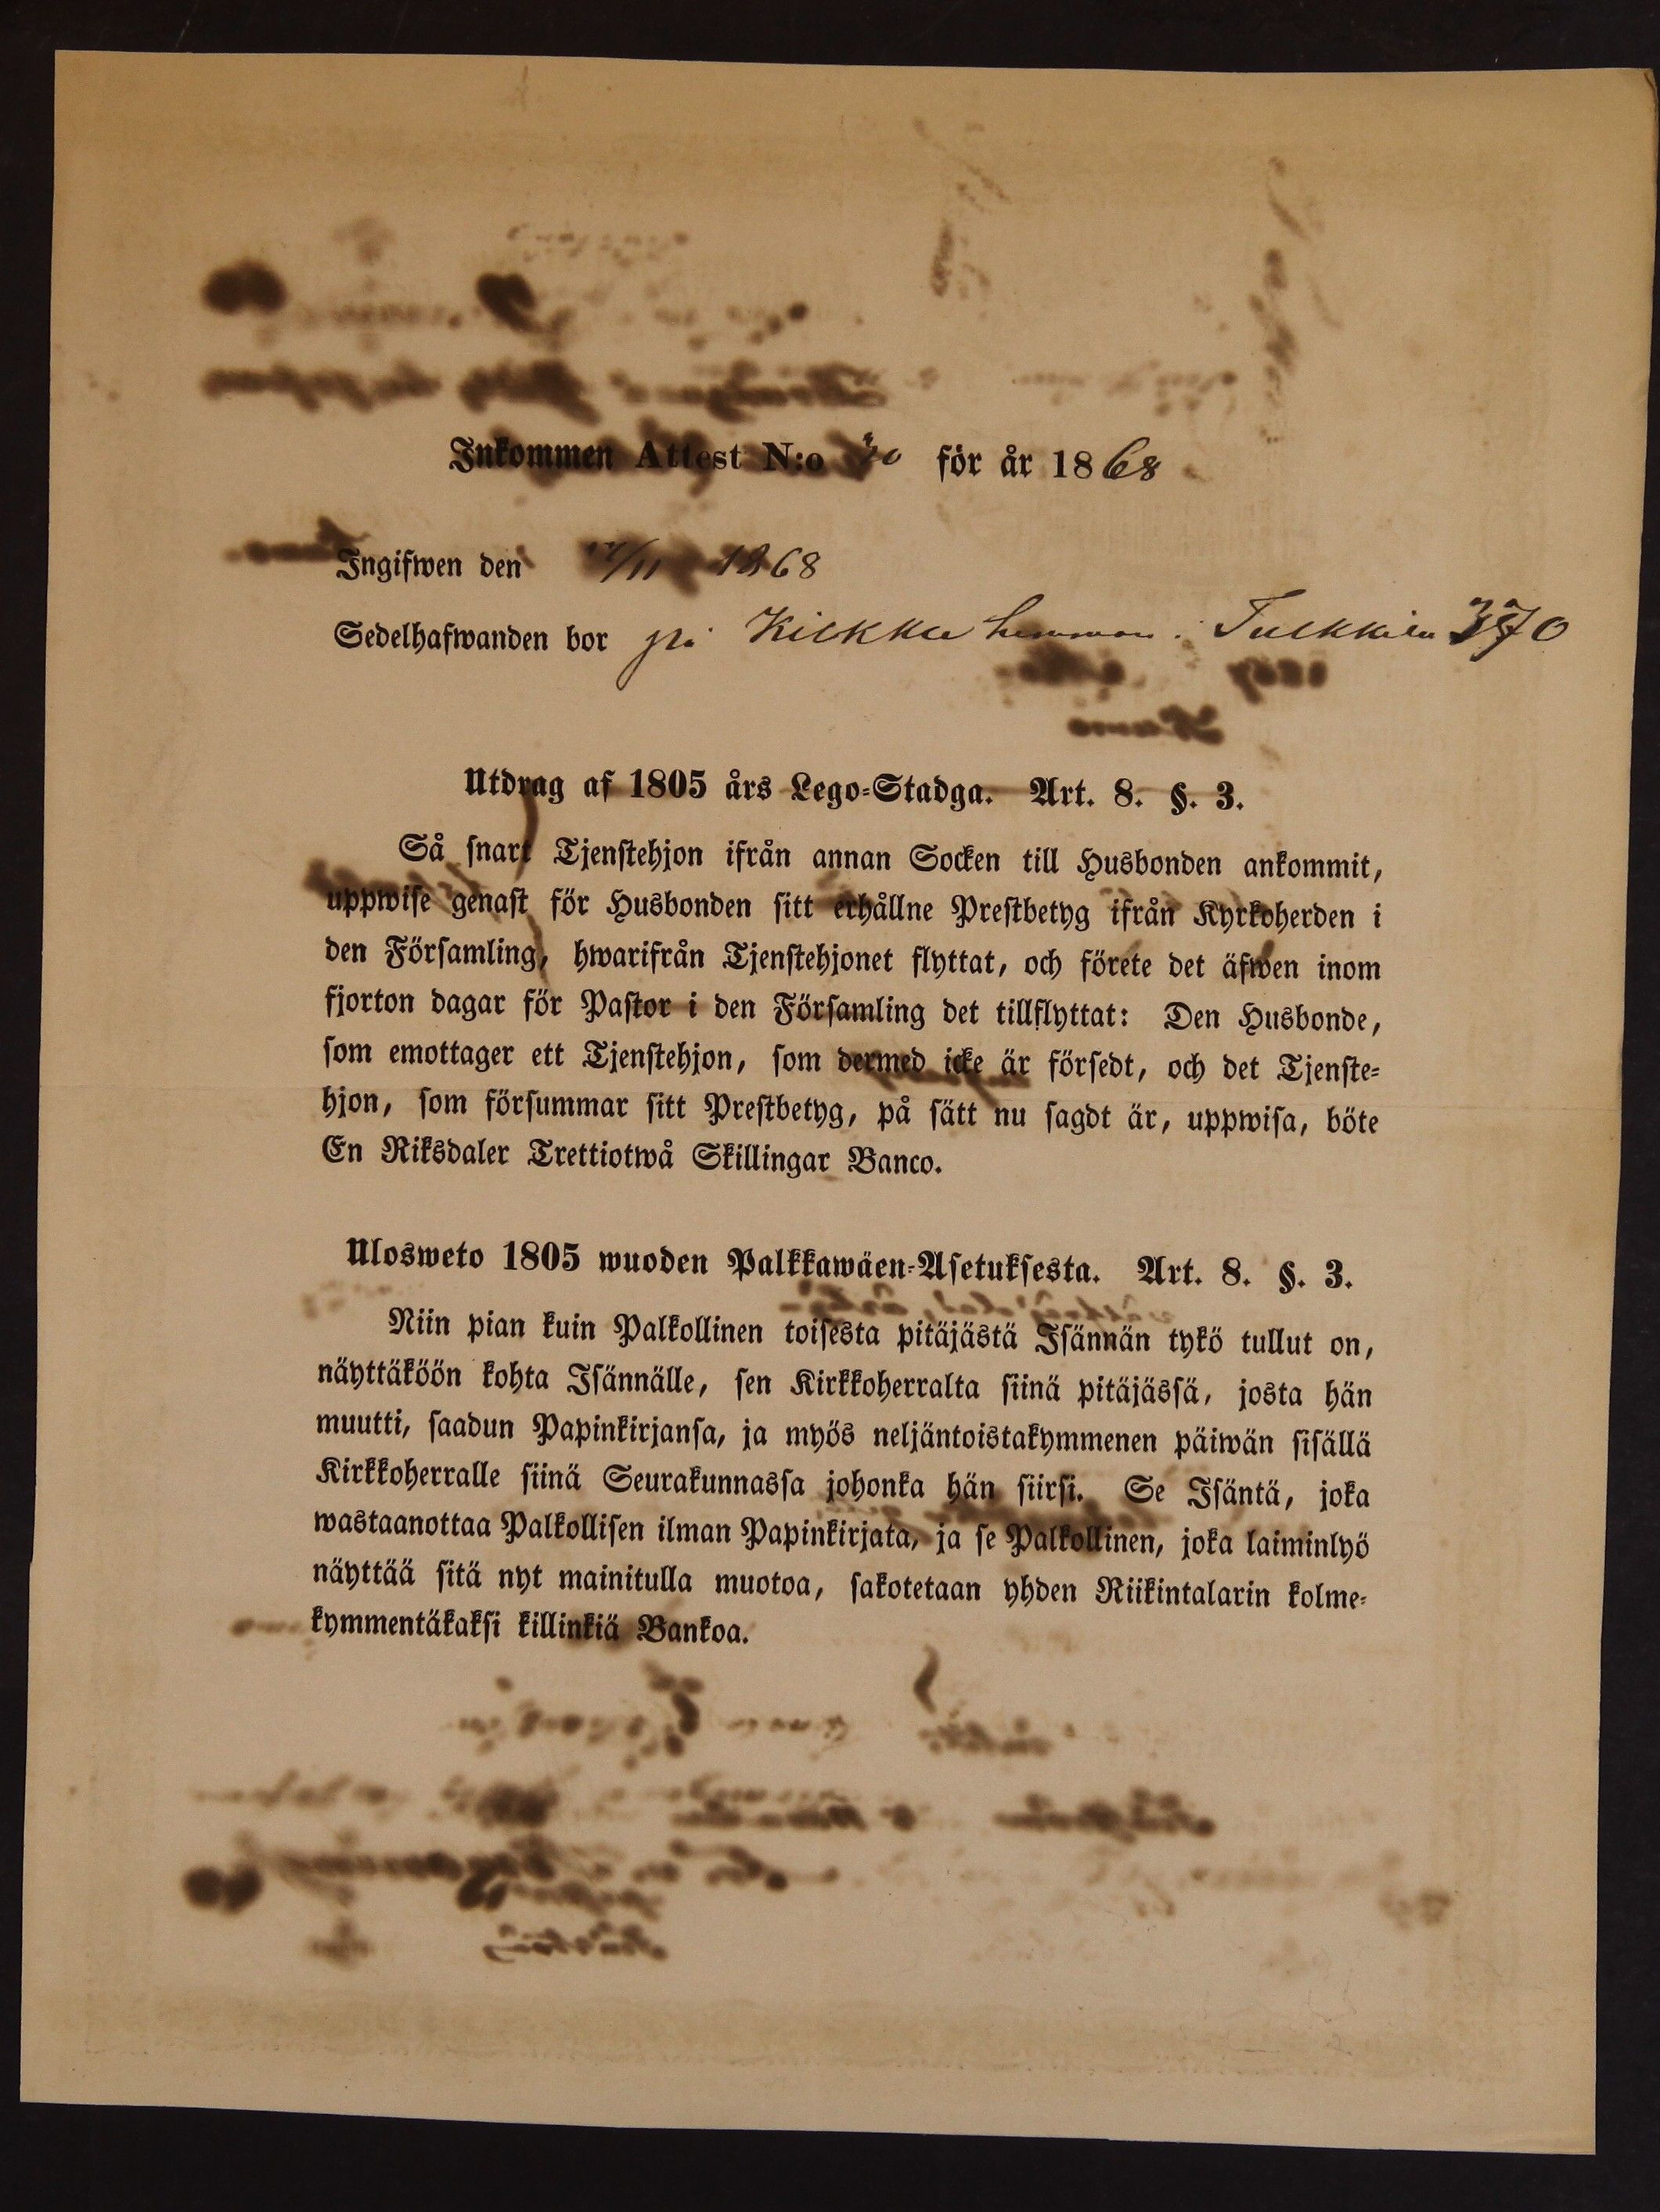 Inkommen Attest N:o för år 1868
Ingifwen den /11 1868
Sedelhafwanden bor på Kilkku hemman i Tulkkila 370
Utdrag af 1805 års Lego-Stadga. Art. 8. §. 3.
Så snart Tjenstehjon ifrån annan Socken till Husbonden ankommit,
uppwise genast för Husbonden sitt erhållne Prestbetyg ifrån Kyrkoherden i
den Församling, hwarifrån Tjenstehjonet flyttat, och förete det äfwen inom
fjorton dagar för Pastor i den Församling det tillflyttat: Den Husbonde,
som emottager ett Tjenstehjon, som dermed icke är försedt, och det Tjenste-
hjon, som försummar sitt Prestbetyg, på sätt nu sagdt är, uppwisa, böte
En Riksdaler Trettiotwå Skillingar Banco.
Ulosweto 1805 wuoden Palkkawäen-Asetuksesta. Art. 8. §. 3.
Niin pian kuin Palkollinen toisesta pitäjästä Isännän tykö tullut on,
näyttäköön kohta Isännälle, sen Kirkkoherralta siinä pitäjässä, josta hän
muutti, saadun Papinkirjansa, ja myös neljäntoistakymmenen päiwän sisällä
Kirkkoherralle siinä Seurakunnassa johonka hän siirsi. Se Isäntä, joka
wastaanottaa Palkollisen ilman Papinkirjata, ja se Palkollinen, joka laiminlyö
näyttää sitä nyt mainitulla muotoa, sakotetaan yhden Riikintalarin kolme-
kymmentäkaksi killinkiä Bankoa.